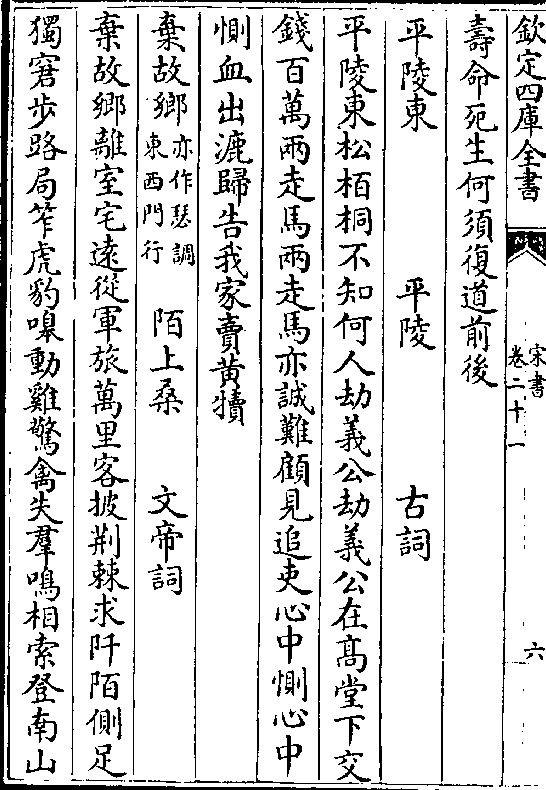 欽定四庫全書
宋書
卷二十一
六
壽命死生何須復道前後
平陵東 平陵 古詞
平陵東松栢桐不知何人劫義公劫義公在髙堂下交
錢百萬兩走馬兩走馬亦誠難顧見追吏心中惻心中
惻血出漉歸告我家賣黄犢
棄故鄉亦作瑟調東西門行 陌上桑 文帝詞
棄故鄉離室宅逺從軍旅萬里客披荆棘求阡陌側足
獨窘步路局笮虎豹嘷動雞驚禽失羣鳴相索登南山